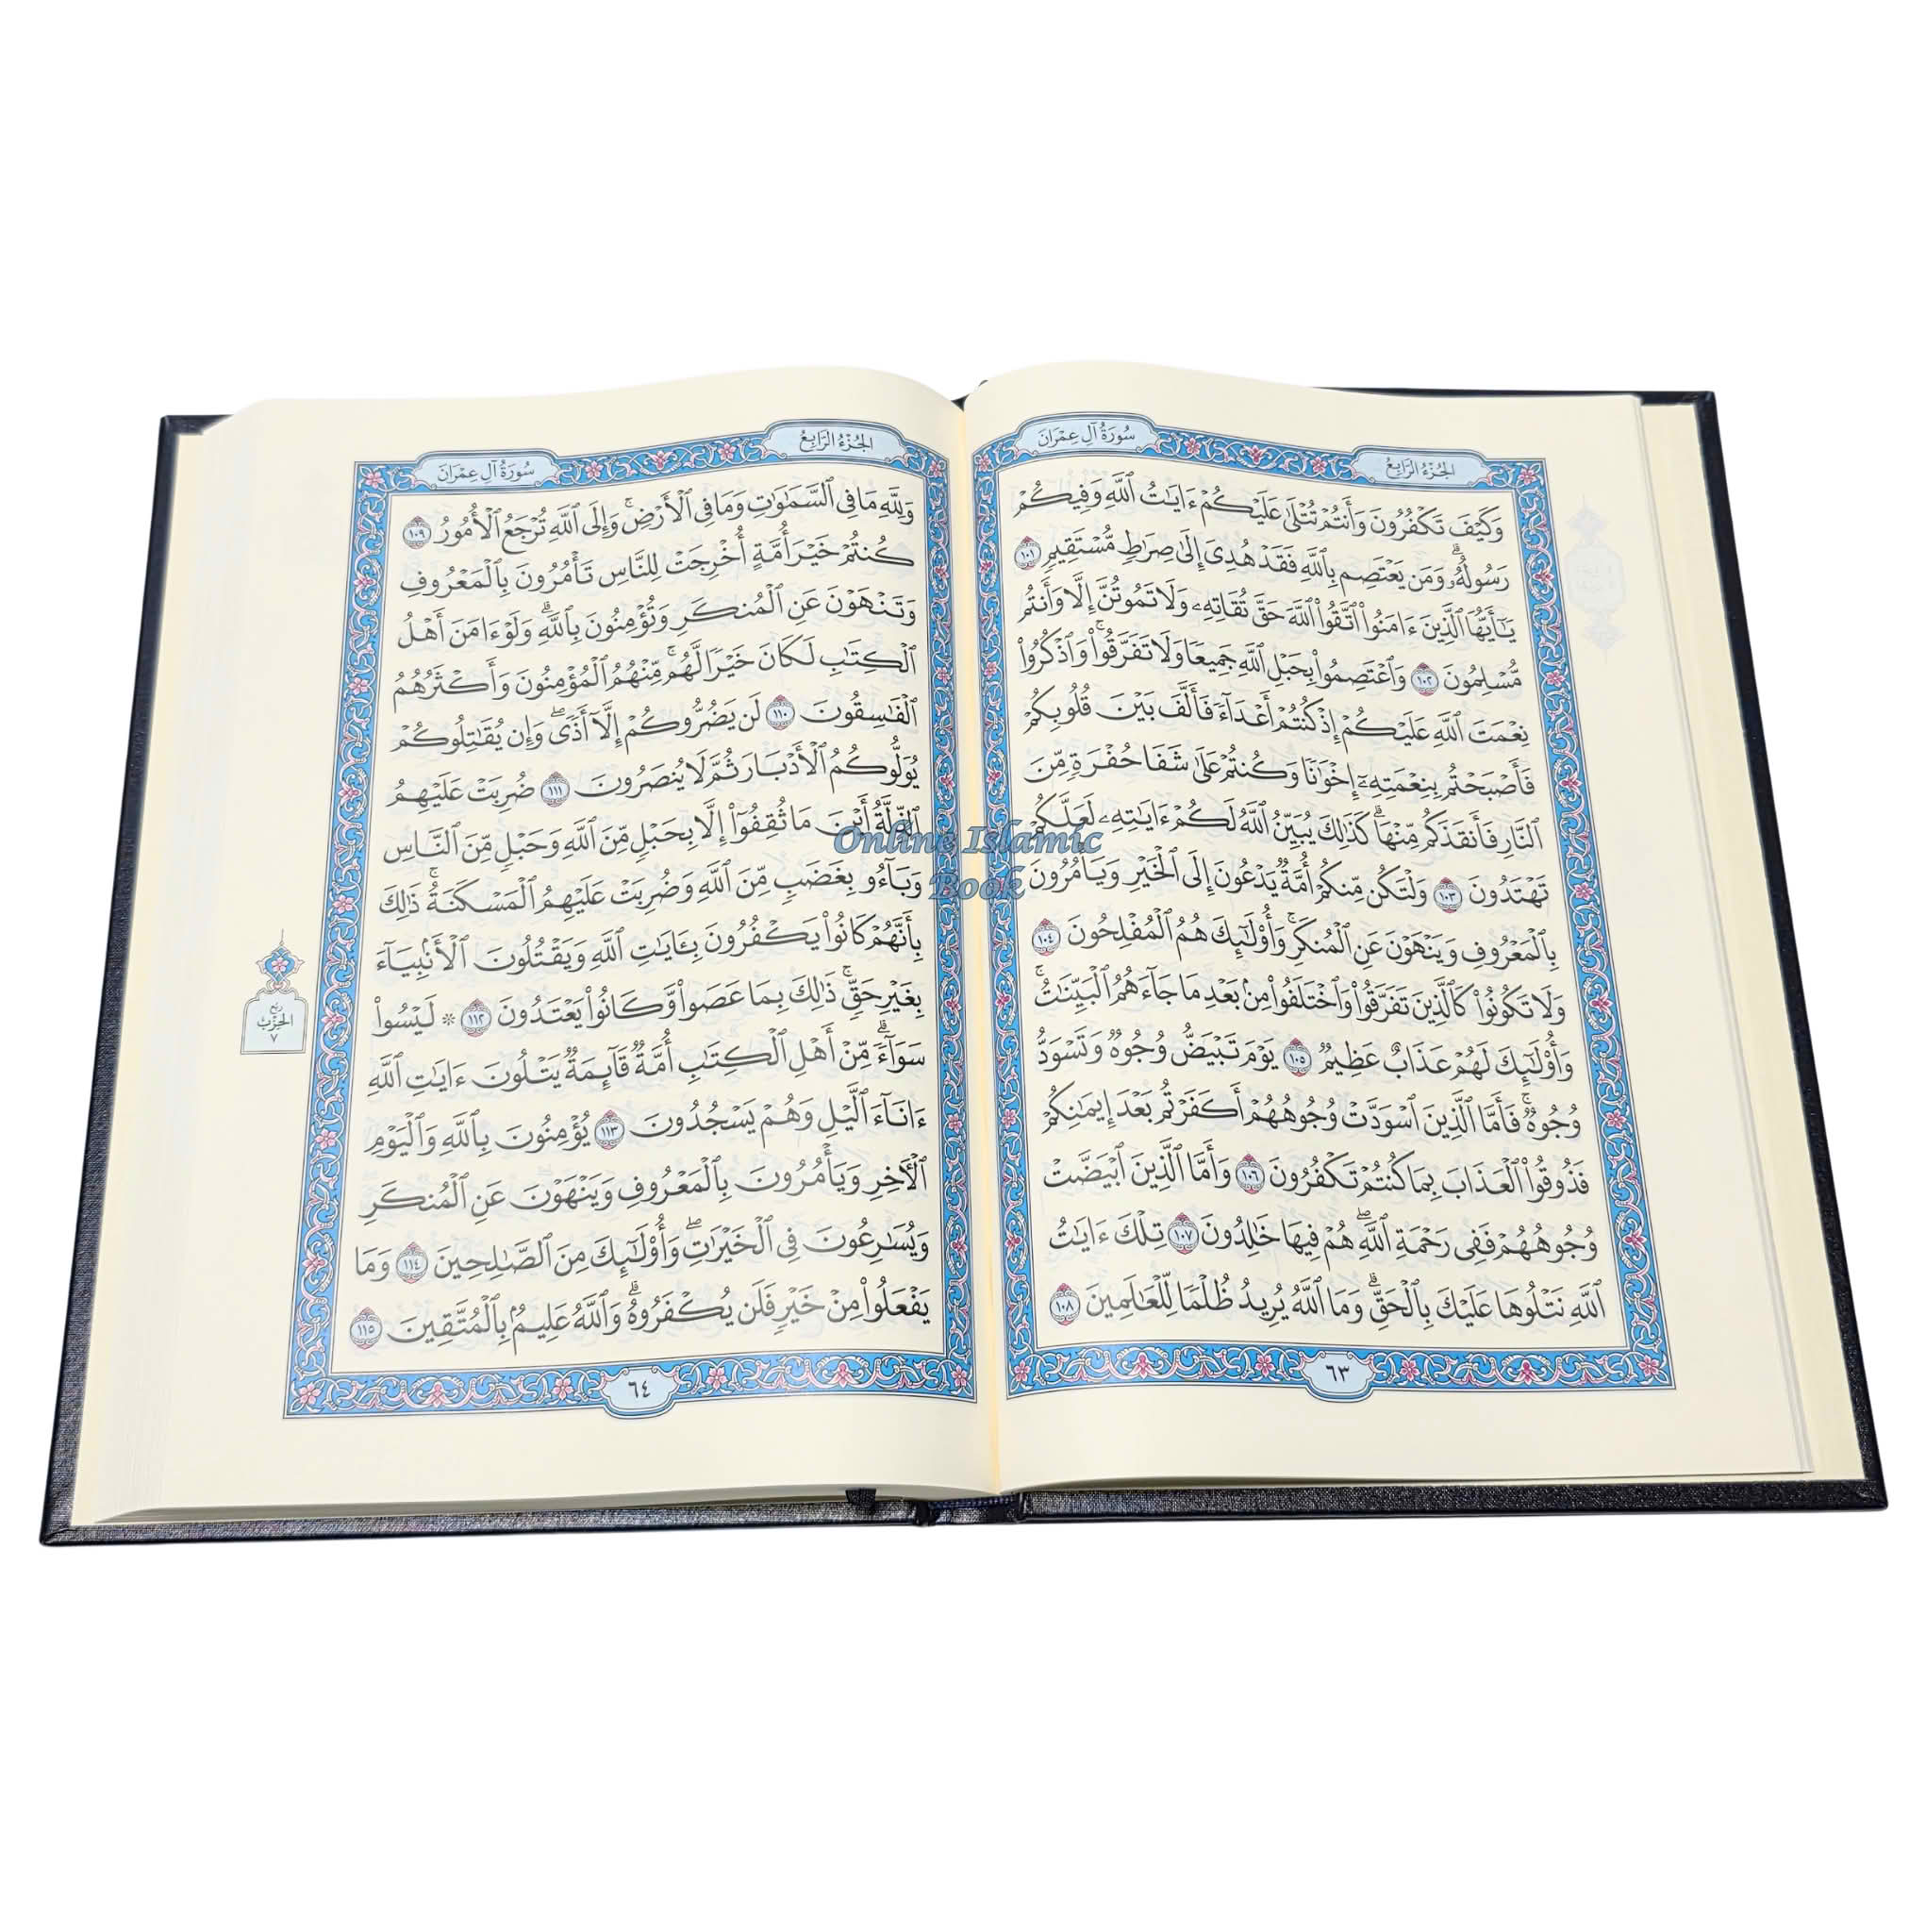 الجُزْءُ الرَّابِعُ
سُورَةُ آلِ عِمْرَانَ
وَكَيْفَ تَكْفُرُونَ وَأَنتُمْ تُتْلَىٰ عَلَيْكُمْ ءَايَٰتُ ٱللَّهِ وَفِيكُمْ
رَسُولُهُۥۗ وَمَن يَعْتَصِم بِٱللَّهِ فَقَدْ هُدِىَ إِلَىٰ صِرَٰطٍ مُّسْتَقِيمٍ ١٠١
يَٰٓأَيُّهَا ٱلَّذِينَ ءَامَنُوا۟ ٱتَّقُوا۟ ٱللَّهَ حَقَّ تُقَاتِهِۦ وَلَا تَمُوتُنَّ إِلَّا وَأَنتُم
مُّسْلِمُونَ ١٠٢ وَٱعْتَصِمُوا۟ بِحَبْلِ ٱللَّهِ جَمِيعًا وَلَا تَفَرَّقُوا۟ۚ وَٱذْكُرُوا۟
نِعْمَتَ ٱللَّهِ عَلَيْكُمْ إِذْ كُنتُمْ أَعْدَآءً فَأَلَّفَ بَيْنَ قُلُوبِكُمْ
فَأَصْبَحْتُم بِنِعْمَتِهِۦٓ إِخْوَٰنًا وَكُنتُمْ عَلَىٰ شَفَا حُفْرَةٍ مِّنَ
ٱلنَّارِ فَأَنقَذَكُم مِّنْهَاۗ كَذَٰلِكَ يُبَيِّنُ ٱللَّهُ لَكُمْ ءَايَٰتِهِۦ لَعَلَّكُمْ
تَهْتَدُونَ ١٠٣ وَلْتَكُن مِّنكُمْ أُمَّةٌ يَدْعُونَ إِلَى ٱلْخَيْرِ وَيَأْمُرُونَ
بِٱلْمَعْرُوفِ وَيَنْهَوْنَ عَنِ ٱلْمُنكَرِۚ وَأُو۟لَٰٓئِكَ هُمُ ٱلْمُفْلِحُونَ ١٠٤
وَلَا تَكُونُوا۟ كَٱلَّذِينَ تَفَرَّقُوا۟ وَٱخْتَلَفُوا۟ مِنۢ بَعْدِ مَا جَآءَهُمُ ٱلْبَيِّنَٰتُۚ
وَأُو۟لَٰٓئِكَ لَهُمْ عَذَابٌ عَظِيمٌ ١٠٥ يَوْمَ تَبْيَضُّ وُجُوهٌ وَتَسْوَدُّ
وُجُوهٌۚ فَأَمَّا ٱلَّذِينَ ٱسْوَدَّتْ وُجُوهُهُمْ أَكَفَرْتُم بَعْدَ إِيمَٰنِكُمْ
فَذُوقُوا۟ ٱلْعَذَابَ بِمَا كُنتُمْ تَكْفُرُونَ ١٠٦ وَأَمَّا ٱلَّذِينَ ٱبْيَضَّتْ
وُجُوهُهُمْ فَفِى رَحْمَةِ ٱللَّهِۖ هُمْ فِيهَا خَٰلِدُونَ ١٠٧ تِلْكَ ءَايَٰتُ
ٱللَّهِ نَتْلُوهَا عَلَيْكَ بِٱلْحَقِّۗ وَمَا ٱللَّهُ يُرِيدُ ظُلْمًا لِّلْعَٰلَمِينَ ١٠٨
٦٣
الجُزْءُ الرَّابِعُ
سُورَةُ آلِ عِمْرَانَ
وَلِلَّهِ مَا فِى ٱلسَّمَٰوَٰتِ وَمَا فِى ٱلْأَرْضِۚ وَإِلَى ٱللَّهِ تُرْجَعُ ٱلْأُمُورُ ١٠٩
كُنتُمْ خَيْرَ أُمَّةٍ أُخْرِجَتْ لِلنَّاسِ تَأْمُرُونَ بِٱلْمَعْرُوفِ
وَتَنْهَوْنَ عَنِ ٱلْمُنكَرِ وَتُؤْمِنُونَ بِٱللَّهِۗ وَلَوْ ءَامَنَ أَهْلُ
ٱلْكِتَٰبِ لَكَانَ خَيْرًا لَّهُمۚ مِّنْهُمُ ٱلْمُؤْمِنُونَ وَأَكْثَرُهُمُ
ٱلْفَٰسِقُونَ ١١٠ لَن يَضُرُّوكُمْ إِلَّآ أَذًىۖ وَإِن يُقَٰتِلُوكُمْ
يُوَلُّوكُمُ ٱلْأَدْبَارَ ثُمَّ لَا يُنصَرُونَ ١١١ ضُرِبَتْ عَلَيْهِمُ
ٱلذِّلَّةُ أَيْنَ مَا ثُقِفُوٓا۟ إِلَّا بِحَبْلٍ مِّنَ ٱللَّهِ وَحَبْلٍ مِّنَ ٱلنَّاسِ
وَبَآءُو بِغَضَبٍ مِّنَ ٱللَّهِ وَضُرِبَتْ عَلَيْهِمُ ٱلْمَسْكَنَةُۚ ذَٰلِكَ
بِأَنَّهُمْ كَانُوا۟ يَكْفُرُونَ بِـَٔايَٰتِ ٱللَّهِ وَيَقْتُلُونَ ٱلْأَنۢبِيَآءَ
بِغَيْرِ حَقٍّۚ ذَٰلِكَ بِمَا عَصَوا۟ وَّكَانُوا۟ يَعْتَدُونَ ١١٢ * لَيْسُوا۟
سَوَآءًۗ مِّنْ أَهْلِ ٱلْكِتَٰبِ أُمَّةٌ قَآئِمَةٌ يَتْلُونَ ءَايَٰتِ ٱللَّهِ
ءَانَآءَ ٱلَّيْلِ وَهُمْ يَسْجُدُونَ ١١٣ يُؤْمِنُونَ بِٱللَّهِ وَٱلْيَوْمِ
ٱلْـَٔاخِرِ وَيَأْمُرُونَ بِٱلْمَعْرُوفِ وَيَنْهَوْنَ عَنِ ٱلْمُنكَرِ
وَيُسَٰرِعُونَ فِى ٱلْخَيْرَٰتِۖ وَأُو۟لَٰٓئِكَ مِنَ ٱلصَّٰلِحِينَ ١١٤ وَمَا
يَفْعَلُوا۟ مِنْ خَيْرٍ فَلَن يُكْفَرُوهُۗ وَٱللَّهُ عَلِيمٌۢ بِٱلْمُتَّقِينَ ١١٥
٦٤
رُبع
الحِزْب
٧
Online Islamic
Book